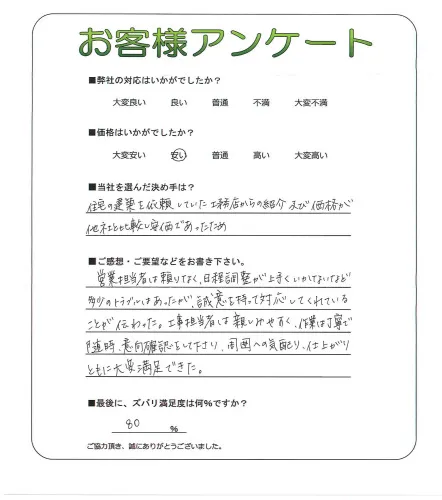 お客様アンケート
■弊社の対応はいかがでしたか？
大変良い　良い　普通　不満　大変不満
■価格はいかがでしたか？
大変安い　安い　普通　高い　大変高い
■当社を選んだ決め手は？
住宅の建築を依頼していた工務店からの紹介及び価格が
他社と比較し安価であったため
■ご感想・ご要望などをお書き下さい。
営業担当者は頼りなく、日程調整が上手くいかないなど
多少のトラブルはあったが、誠意を持って対応してくれている
ことが伝わった。工事担当者は親しみやすく、作業は丁寧で
随時、意向確認をして下さり、周囲への気配り、仕上がり
ともに大変満足できた。
■最後に、ズバリ満足度は何%ですか？
80 %
ご協力頂き、誠にありがとうございました。